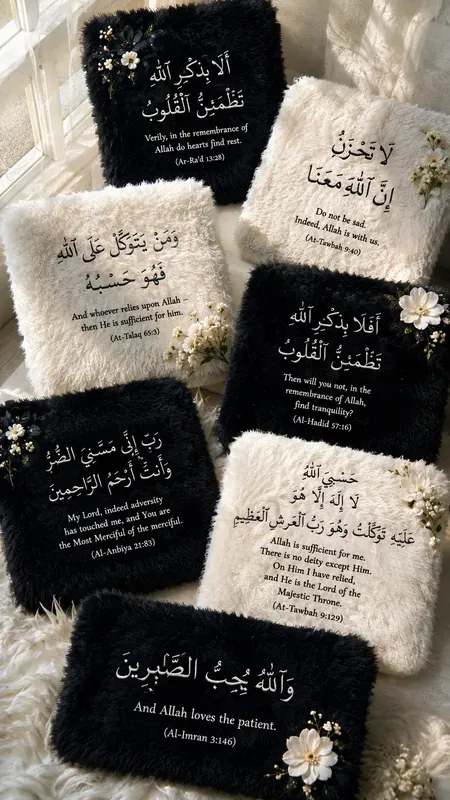 أَلَا بِذِكْرِ اللهِ
تَظْمَئِنُّ الْقُلُوبُ
Verily, in the remembrance of
Allah do hearts find rest.
(Ar-Ra'd 13:28)
لَا تَحْزَنْ
إِنَّ اللهَ مَعَنَا
Do not be sad.
Indeed, Allah is with us.
(At-Tawbah 9:40)
وَمَنْ يَتَوَكَّلْ عَلَى اللهِ
فَهُوَ حَسْبُهُ
And whoever relies upon Allah –
then He is sufficient for him.
(At-Talaq 65:3)
أَفَلَا بِذِكْرِ اللهِ
تَظْمَئِنُّ الْقُلُوبُ
Then will you not, in the
remembrance of Allah,
find tranquility?
(Al-Hadid 57:16)
رَبِّ إِنِّى مَسَّنِيَ الضُّرُّ
وَأَنتَ أَرْحَمُ الرَّاحِمِينَ
My Lord, indeed adversity
has touched me, and You are
the Most Merciful of the merciful.
(Al-Anbiya 21:83)
حَسْبِيَ اللهُ
لَا إِلَهَ إِلَّا هُوَ
عَلَيْهِ تَوَكَّلْتُ وَهُوَ رَبُّ الْعَرْشِ الْعَظِيمِ
Allah is sufficient for me.
There is no deity except Him.
On Him I have relied,
and He is the Lord of the
Majestic Throne.
(At-Tawbah 9:129)
وَاللهُ يُحِبُّ الصَّبِرِينَ
And Allah loves the patient.
(Al-Imran 3:146)